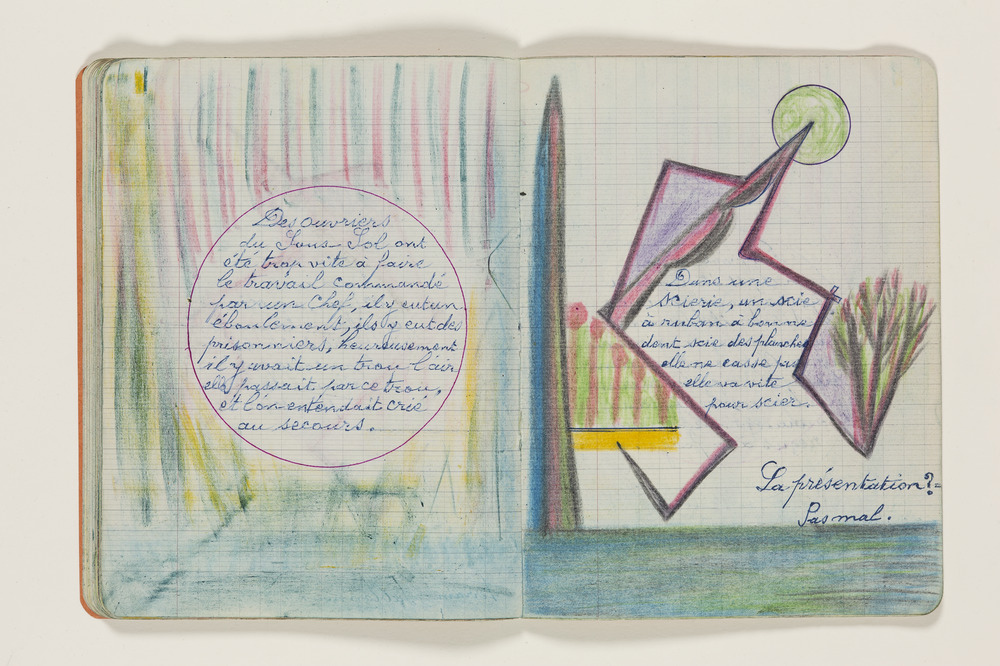 Des ouvriers
du Sous-Sol ont
été trop vite à faire
le travail commandé
par un Chef, il y eut un
éboulement, ils y eut des
prisonniers, heureusement
il y avait un trou l'air
passait par ce trou,
et l'on entendait crié
au secours.
Dans une
scierie, un scie
à ruban à bonne
dent scie des planches
elle ne casse pas
elle va vite
pour scier.
La présentation?
Pas mal.